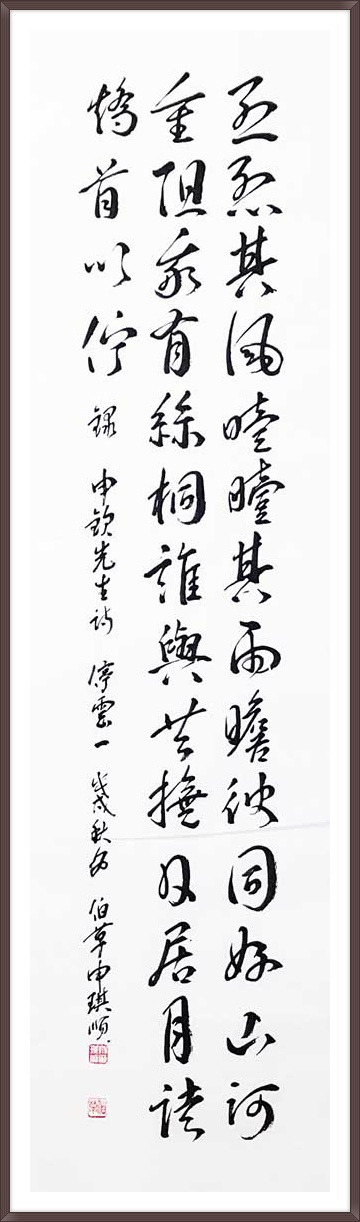 烈烈其風曀曀其雨瞻彼同好山河
重阻我有絲桐誰與共撫日居月諸
矯首以佇 錄 申欽先生詩 停雲一 戊戌秋 伯草申琪順